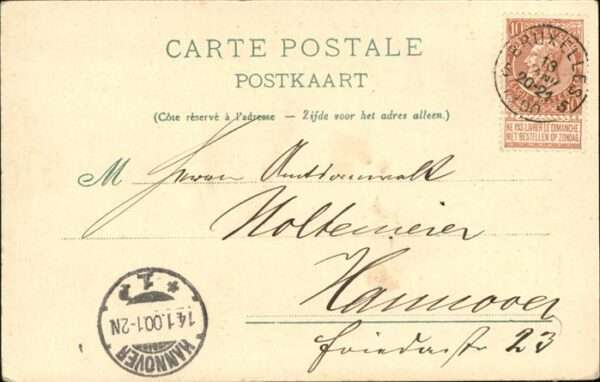 CARTE POSTALE
POSTKAART
(Côte réservé à l'adresse — Zijde voor het adres alleen.)
10
BRUXELLES 5
13
JANV
20-21
1900
NE PAS LIVRER LE DIMANCHE
NIET BESTELLEN OP ZONDAG
M Herrn Amtsanwalt
Noltemeier
Hannover
Friedastr 23
* 1. P *
14.1.00.1-2N
HANNOVER